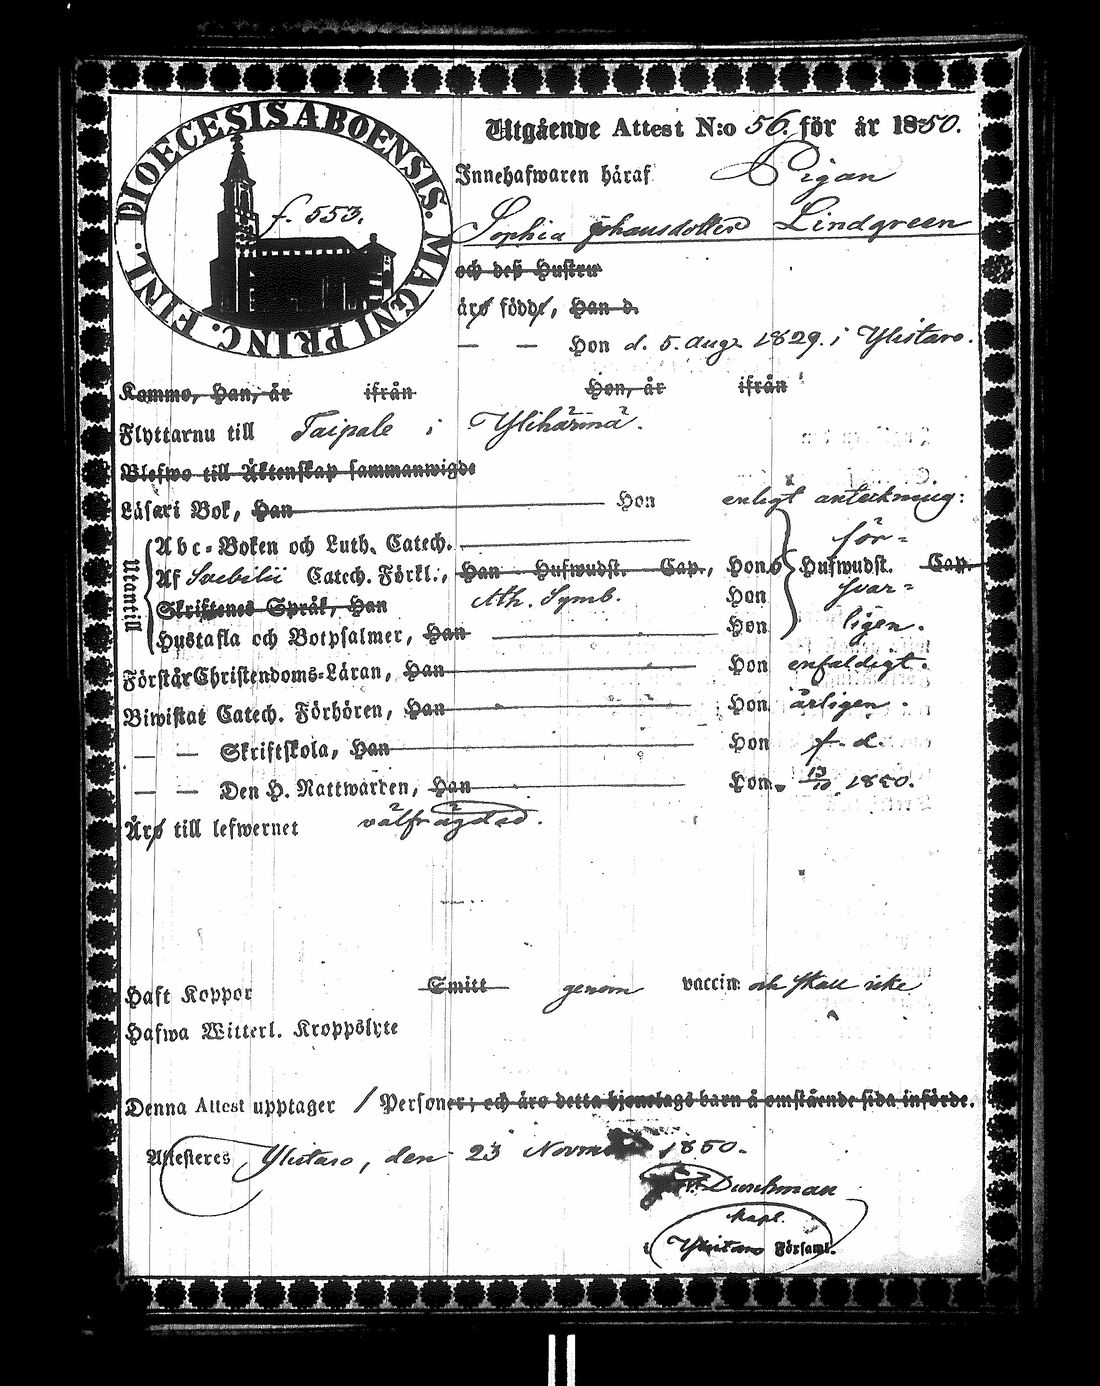 DIOECESIS ABOENSIS. MAGNI PRINC. FINL.
f. 553.
Utgående Attest N:o 56. för år 1850.
Innehafwaren håraf Pigan
Sophia Johansdotter Lindgreen
och deß Hustru
äro födde, Han d.
— — Hon d. 5. Aug. 1829. i Ylistaro.
Kommo, Han, år ifrån Hon, år ifrån
Flyttarnu till Taipale i Ylihärmä.
Blefwo till Äktenskap sammanwigde
Läsari Bok, Han Hon enligt anteckning:
Utantill
Abc-Boken och Luth. Catech. för-
Af Svebilii Catech. Förkl., Han Hufwudst. Cap., Hon 6 Hufwudst. Cap.
Skriftenes Språk, Han Ath. Symb. Hon svar-
Hustafla och Botpsalmer, Han Hon ligen.
Förstår Christendoms-Läran, Han Hon enfaldigt.
Biwistat Catech. Förhören, Han Hon årligen.
— — Skriftskola, Han Hon f. d.
— — Den H. Nattwarden, Han Hon 13/10 1850.
Äro till lefwernet välfrägdad.
Haft Koppor Smitt genom vaccin. och skall icke
Hafwa Witterl. Kroppslyte
Denna Attest upptager 1 Personer; och äro detta hjonelags barn å omstående sida införde.
Attesteres Ylistaro, den 23 Novemb 1850.
Durchman
Kapl.
i Ylistaro Församl.